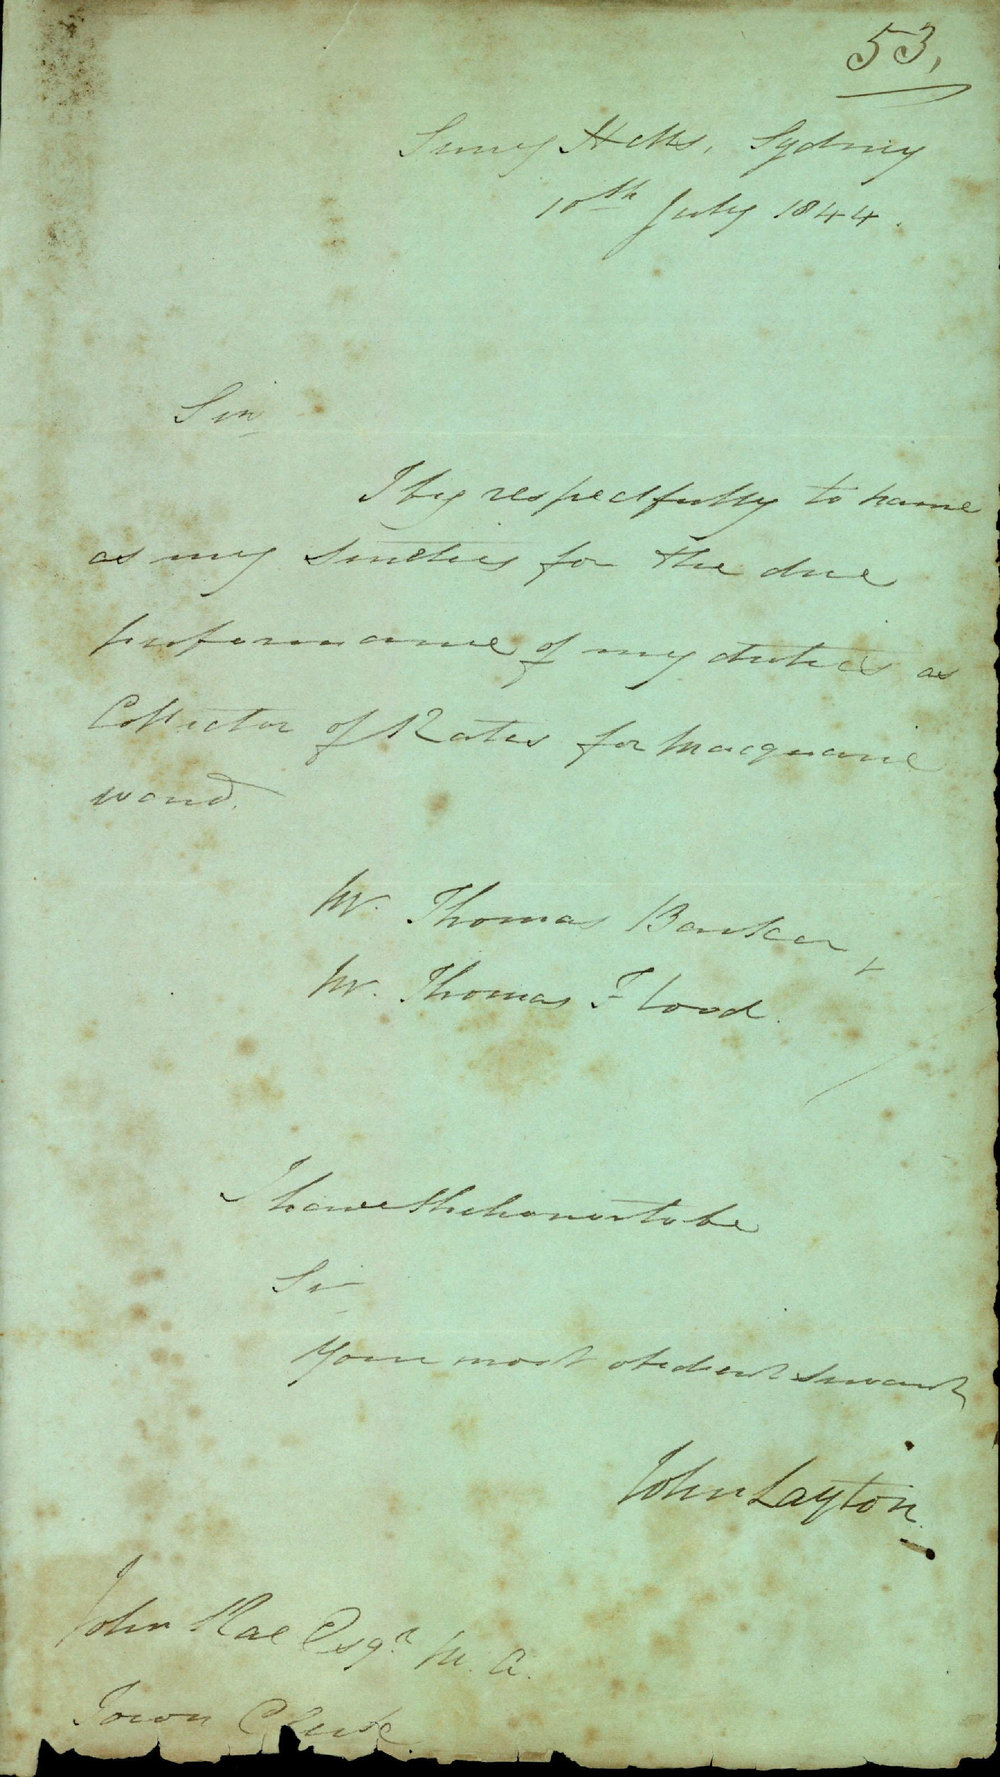 53.
Surry Hills, Sydney
10th July 1844.
Sir,
I beg respectfully to name
as my sureties for the due
performance of my duties as
Collector of Rates for Macquarie
Ward.
Mr. Thomas Barker, &
Mr. Thomas Flood.
I have the honor to be
Sir
Your most obedient servant
John Layton.
John Rae Esqr. M. A.
Town Clerk